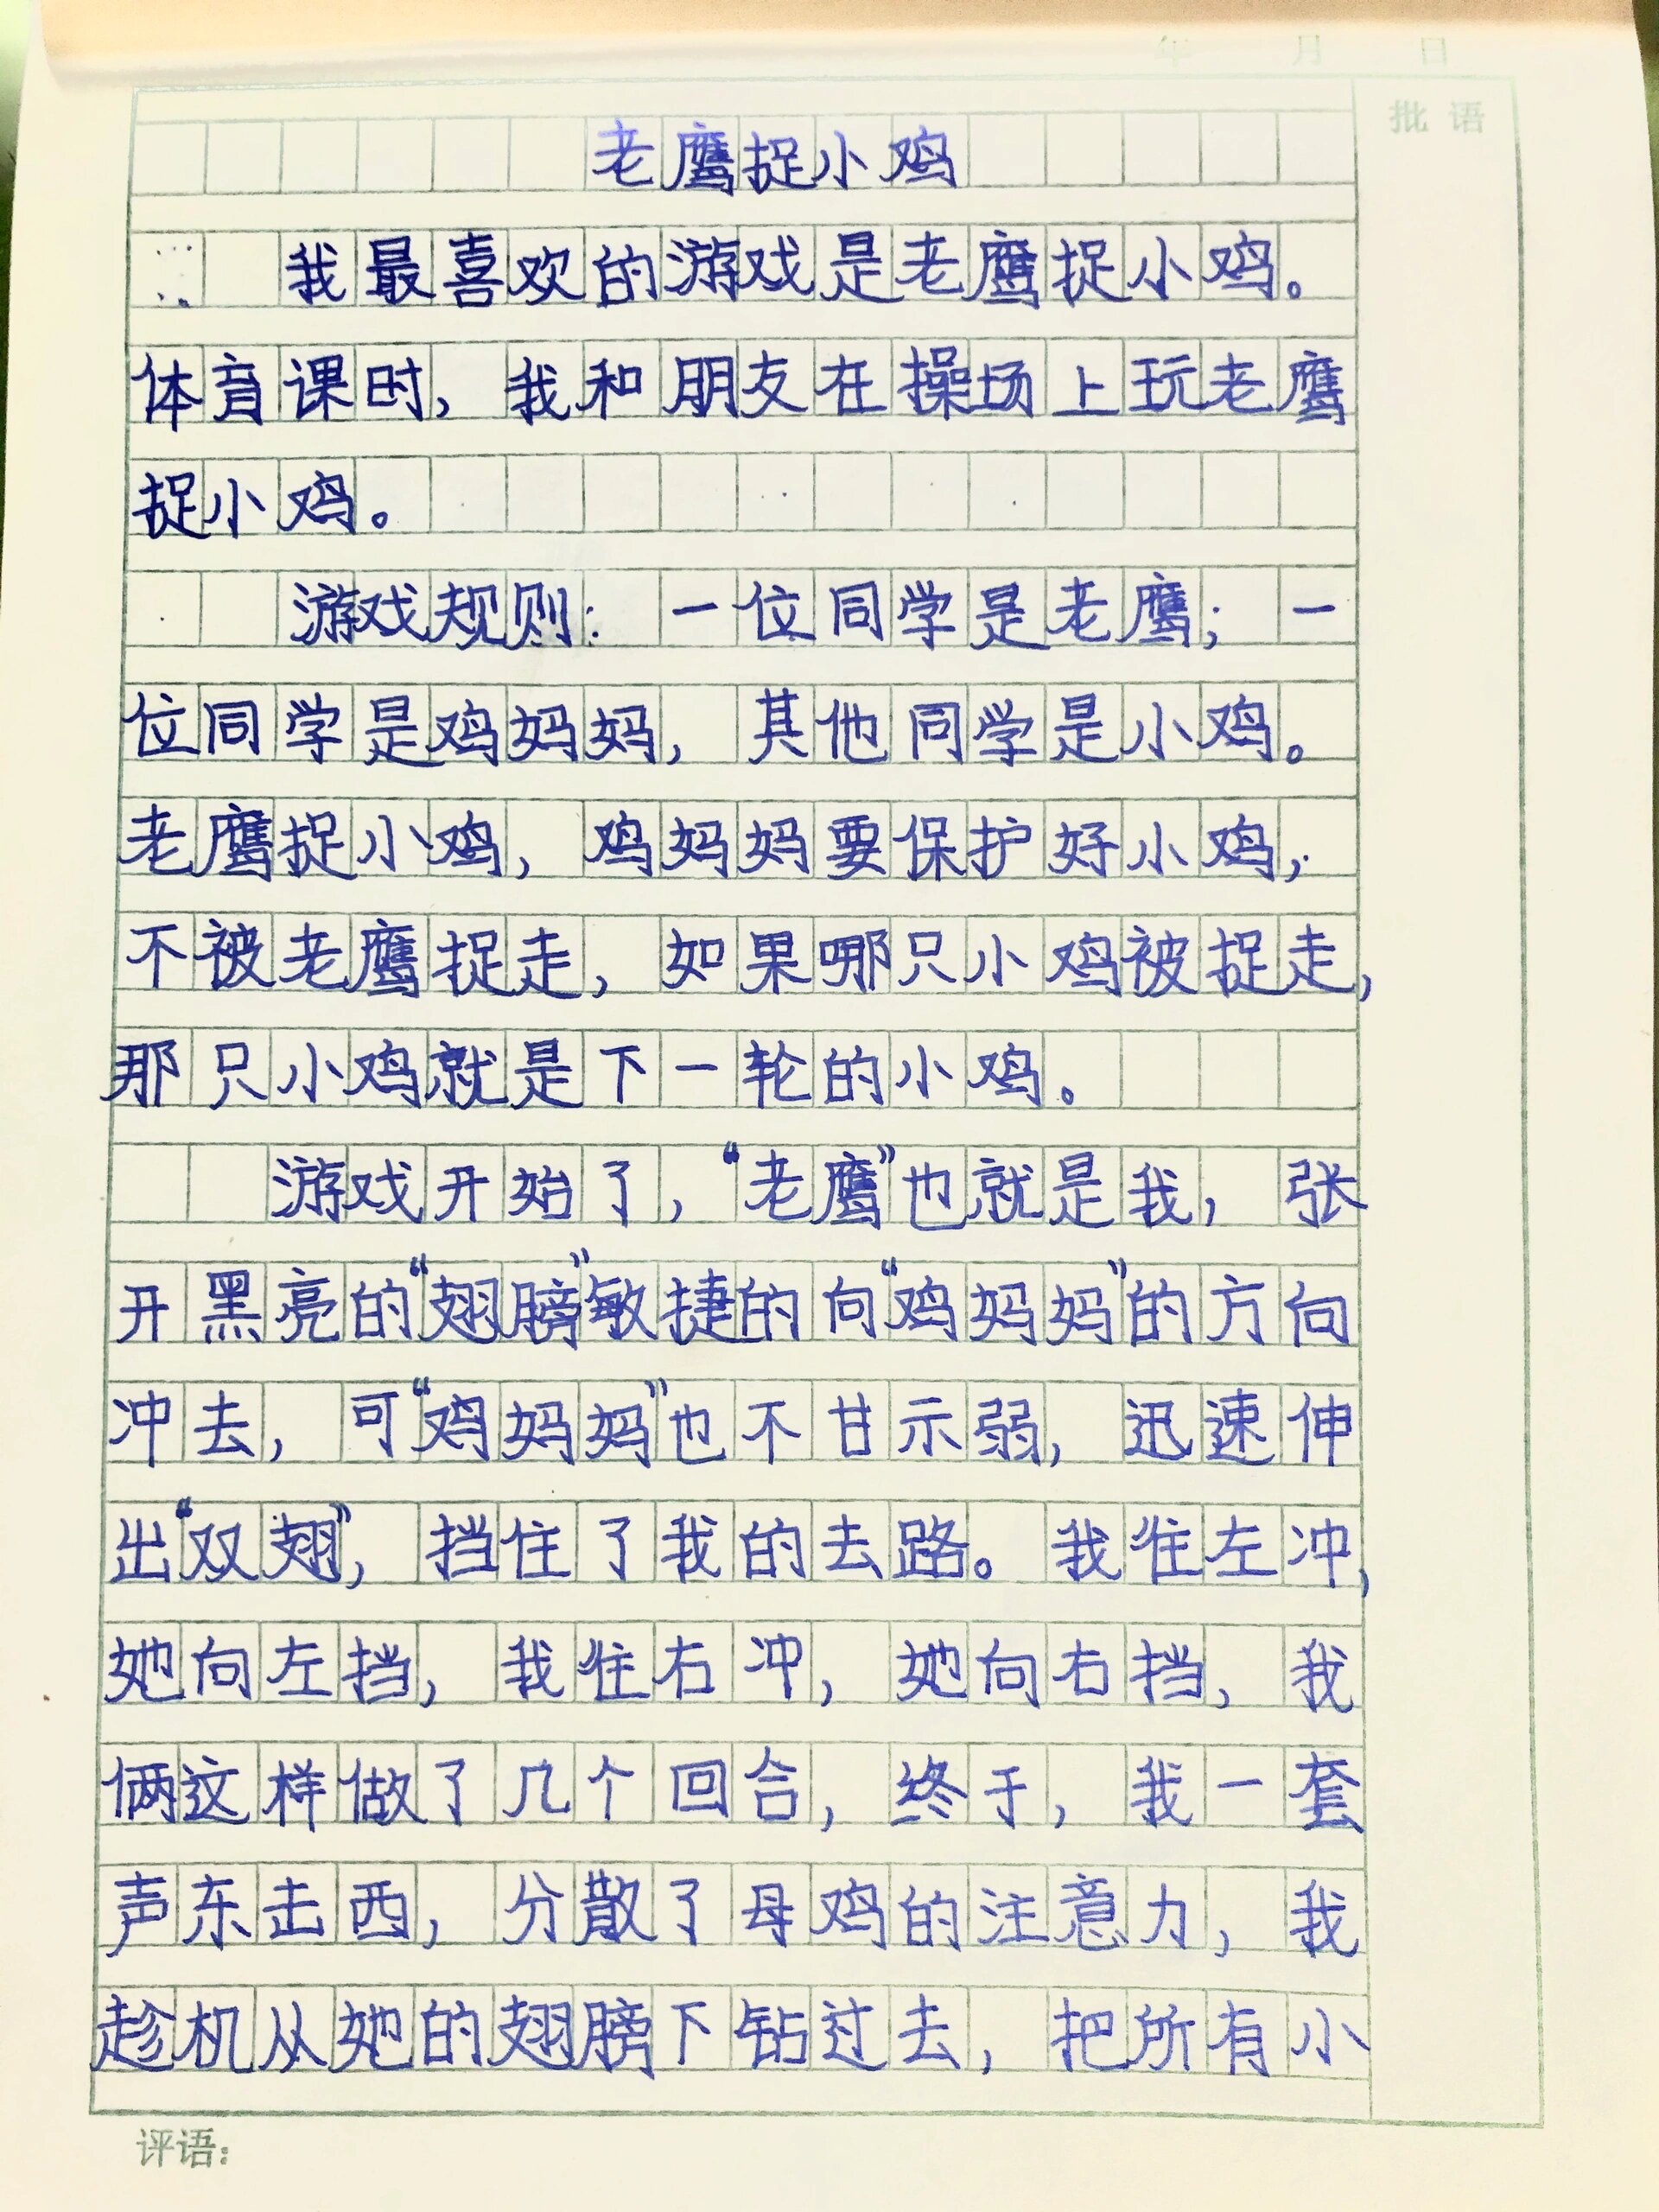 年 月 日
批语
老鹰捉小鸡
我最喜欢的游戏是老鹰捉小鸡。
体育课时，我和朋友在操场上玩老鹰
捉小鸡。
游戏规则：一位同学是老鹰；一
位同学是鸡妈妈，其他同学是小鸡。
老鹰捉小鸡，鸡妈妈要保护好小鸡，
不被老鹰捉走，如果哪只小鸡被捉走，
那只小鸡就是下一轮的小鸡。
游戏开始了，“老鹰”也就是我，张
开黑亮的“翅膀”敏捷的向“鸡妈妈”的方向
冲去，可“鸡妈妈”也不甘示弱，迅速伸
出“双翅”，挡住了我的去路。我往左冲，
她向左挡，我往右冲，她向右挡，我
俩这样做了几个回合，终于，我一套
声东击西，分散了母鸡的注意力，我
趁机从她的翅膀下钻过去，把所有小
评语：